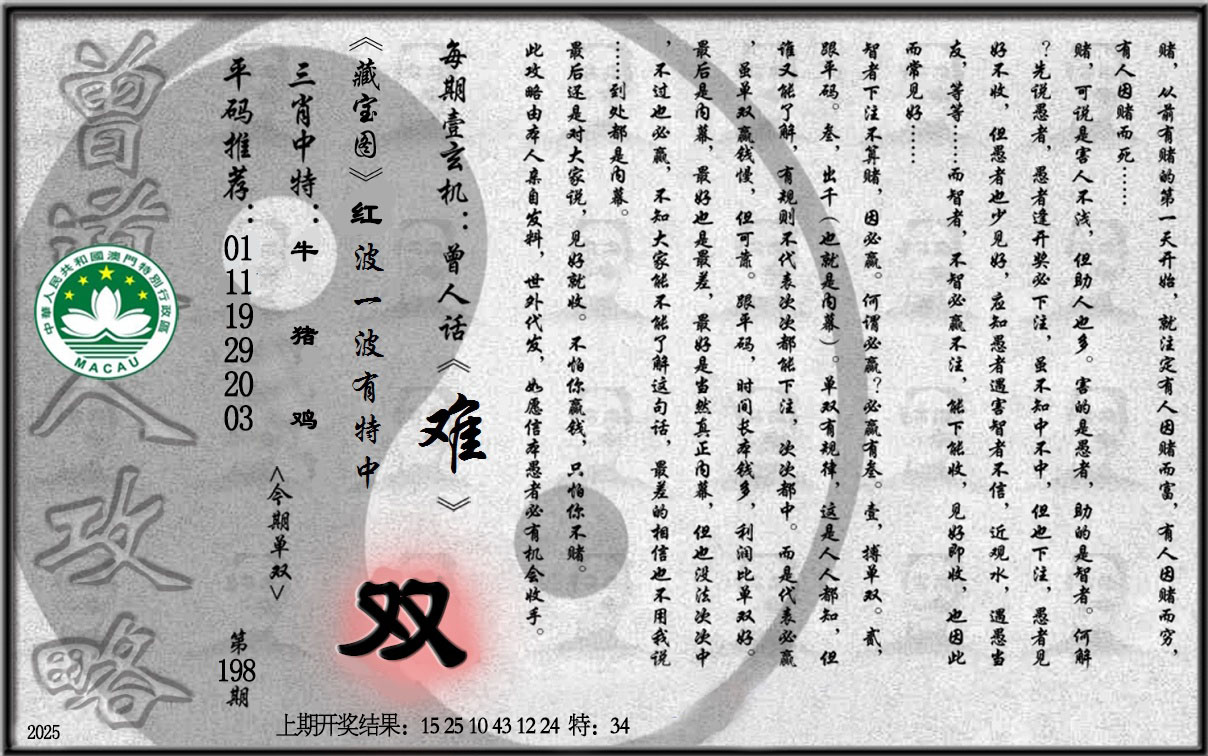 赌，从前有赌的第一天开始，就注定有人因赌而富，有人因赌而穷，
有人因赌而死……
赌，可说是害人不浅，但助人也多。害的是愚者，助的是智者。何解
？先说愚者，愚者逢开奖必下注，虽不知中不中，但也下注，愚者见
好不收，但愚者也少见好，应知愚者遇害智者不信，近观水，遇愚当
友，等等……而智者，不智必赢不注，能下能收，见好即收，也因此
而常见好……
智者下注不算赌，因必赢。何谓必赢？必赢有叁。壹，搏单双。贰，
跟平码。叁，出千（也就是内幕）。单双有规律，这是人人都知，但
谁又能了解，有规则不代表次次都能下注，次次都中。而是代表必赢
，虽单双赢钱慢，但可靠。跟平码，时间长本钱多，利润比单双好。
最后是内幕，最好也是最差，最好是当然真正内幕，但也没法次次中
，不过也必赢，不知大家能不能了解这句话，最差的相信也不用我说
……到处都是内幕。
最后还是对大家说，见好就收。不怕你赢钱，只怕你不赌。
此攻略由本人亲自发料，世外代发，如愿信本愚者必有机会收手。
每期壹玄机：曾人话《难》
《藏宝图》红波一波有特中
双
三肖中特：牛 猪 鸡
<今期单双>
平码推荐：01 11 19 29 20 03
第198期
曾道人攻略
中華人民共和國澳門特別行政區
MACAU
上期开奖结果：15 25 10 43 12 24 特：34
2025